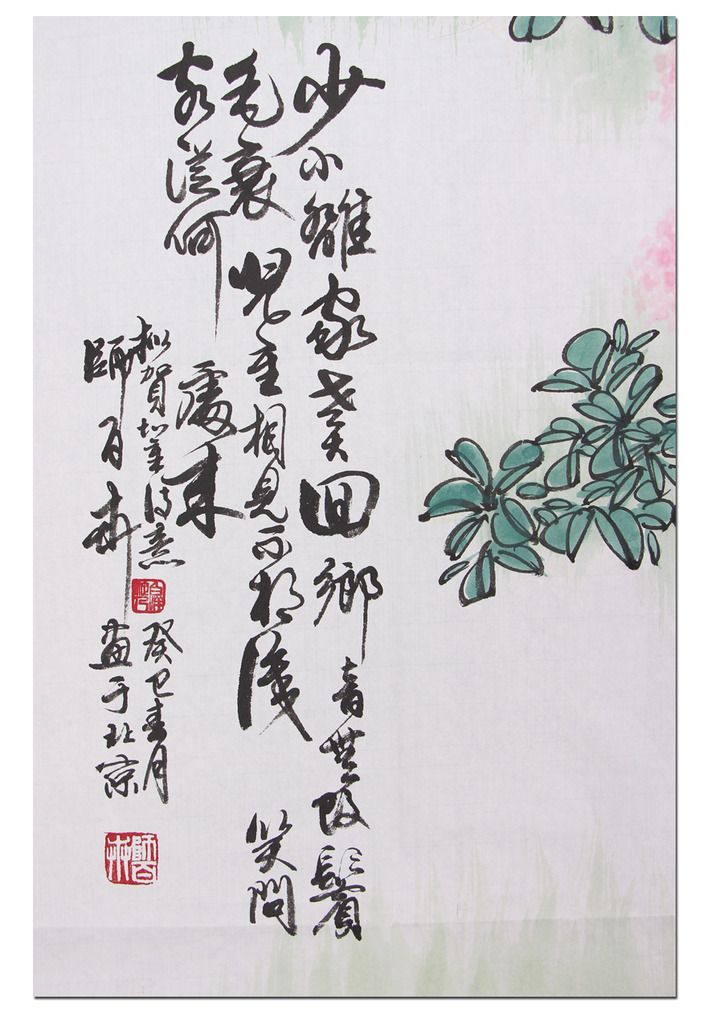 少小離家老大回鄉音無改鬢
毛衰兒童相見不相識笑問
客從何
處來
擬賀知章詩意
癸巳春月
師百林
畫于北京
師百林